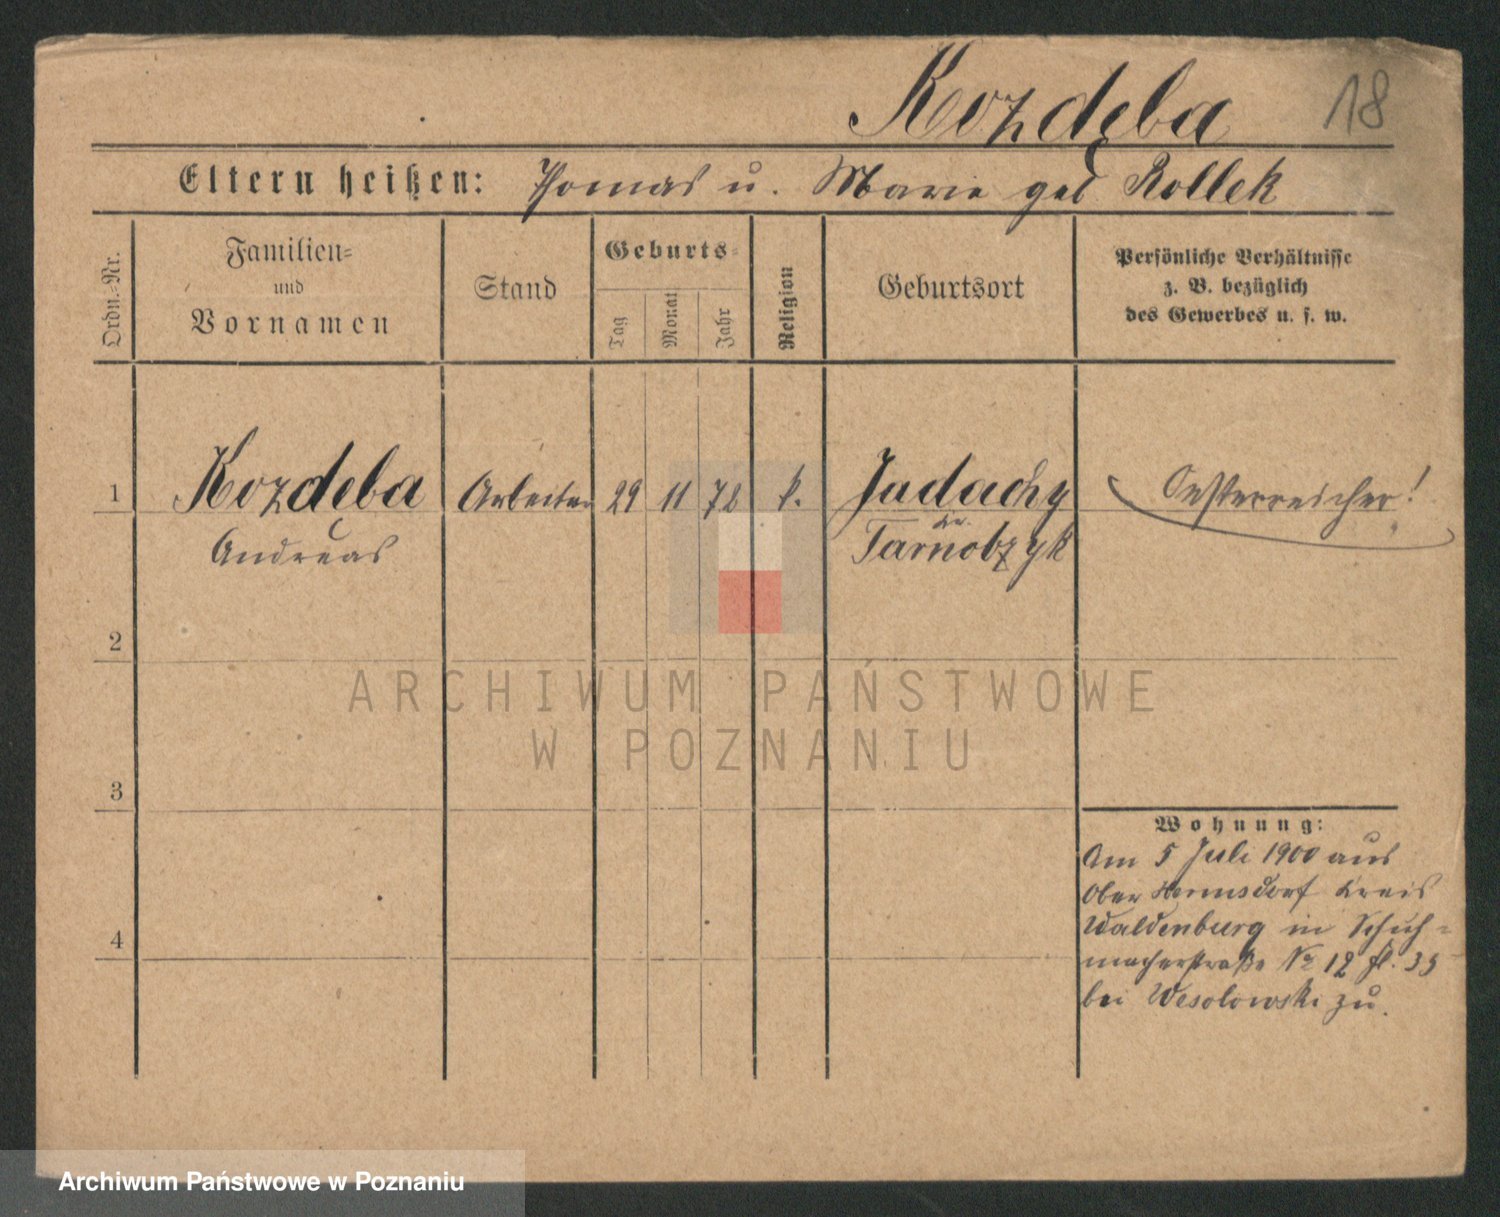 Kozdęba 18
Eltern heißen: Thomas u. Marie geb Rollek
Ordn.=Nr.
Familien=
und
Vornamen
Stand
Geburts=
Tag
Monat
Jahr
Religion
Geburtsort
Persönliche Verhältnisse
z. B. bezüglich
des Gewerbes u. s. w.
1 Kozdeba Arbeiter 29 11 72 k. Jadachy Oesterreicher!
Andreas Kr. Tarnobzyk
2
3
4
Wohnung:
Am 5 Juli 1900 aus
Ober Hermsdorf Kreis
Waldenburg in Schuh=
macherstraße No 12 fl. 35
bei Wesolowski zu.
ARCHIWUM PAŃSTWOWE
W POZNANIU
Archiwum Państwowe w Poznaniu